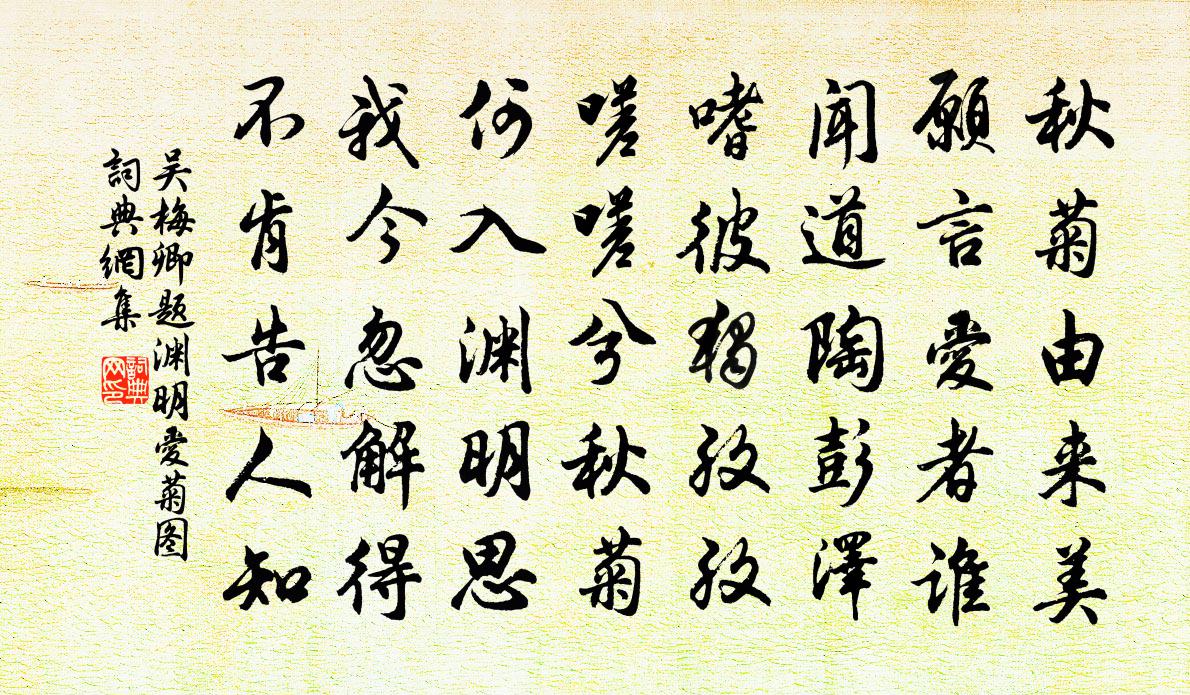 秋菊由来美
願言愛者誰
闻道陶彭澤
嗜彼獨孜孜
嗟嗟兮秋菊
何入渊明思
我今忽解得
不肯告人知
吴梅卿题渊明愛菊图
詞典網集
詞典网印